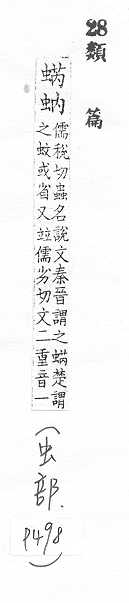 28
類篇
蜹 蚋 儒稅切蟲名說文秦晉謂之蜹楚謂
之蚊或省又竝儒劣切文二重音一
(虫部.
P498)